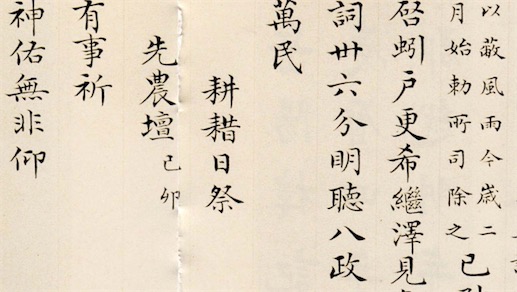 以蔽風雨今歲二
月始勅所司除之
已
启蚓戶更希繼澤見
詞卅六分明聽八政
萬民
耕耤日祭
先農壇 己卯
有事祈
神佑無非仰